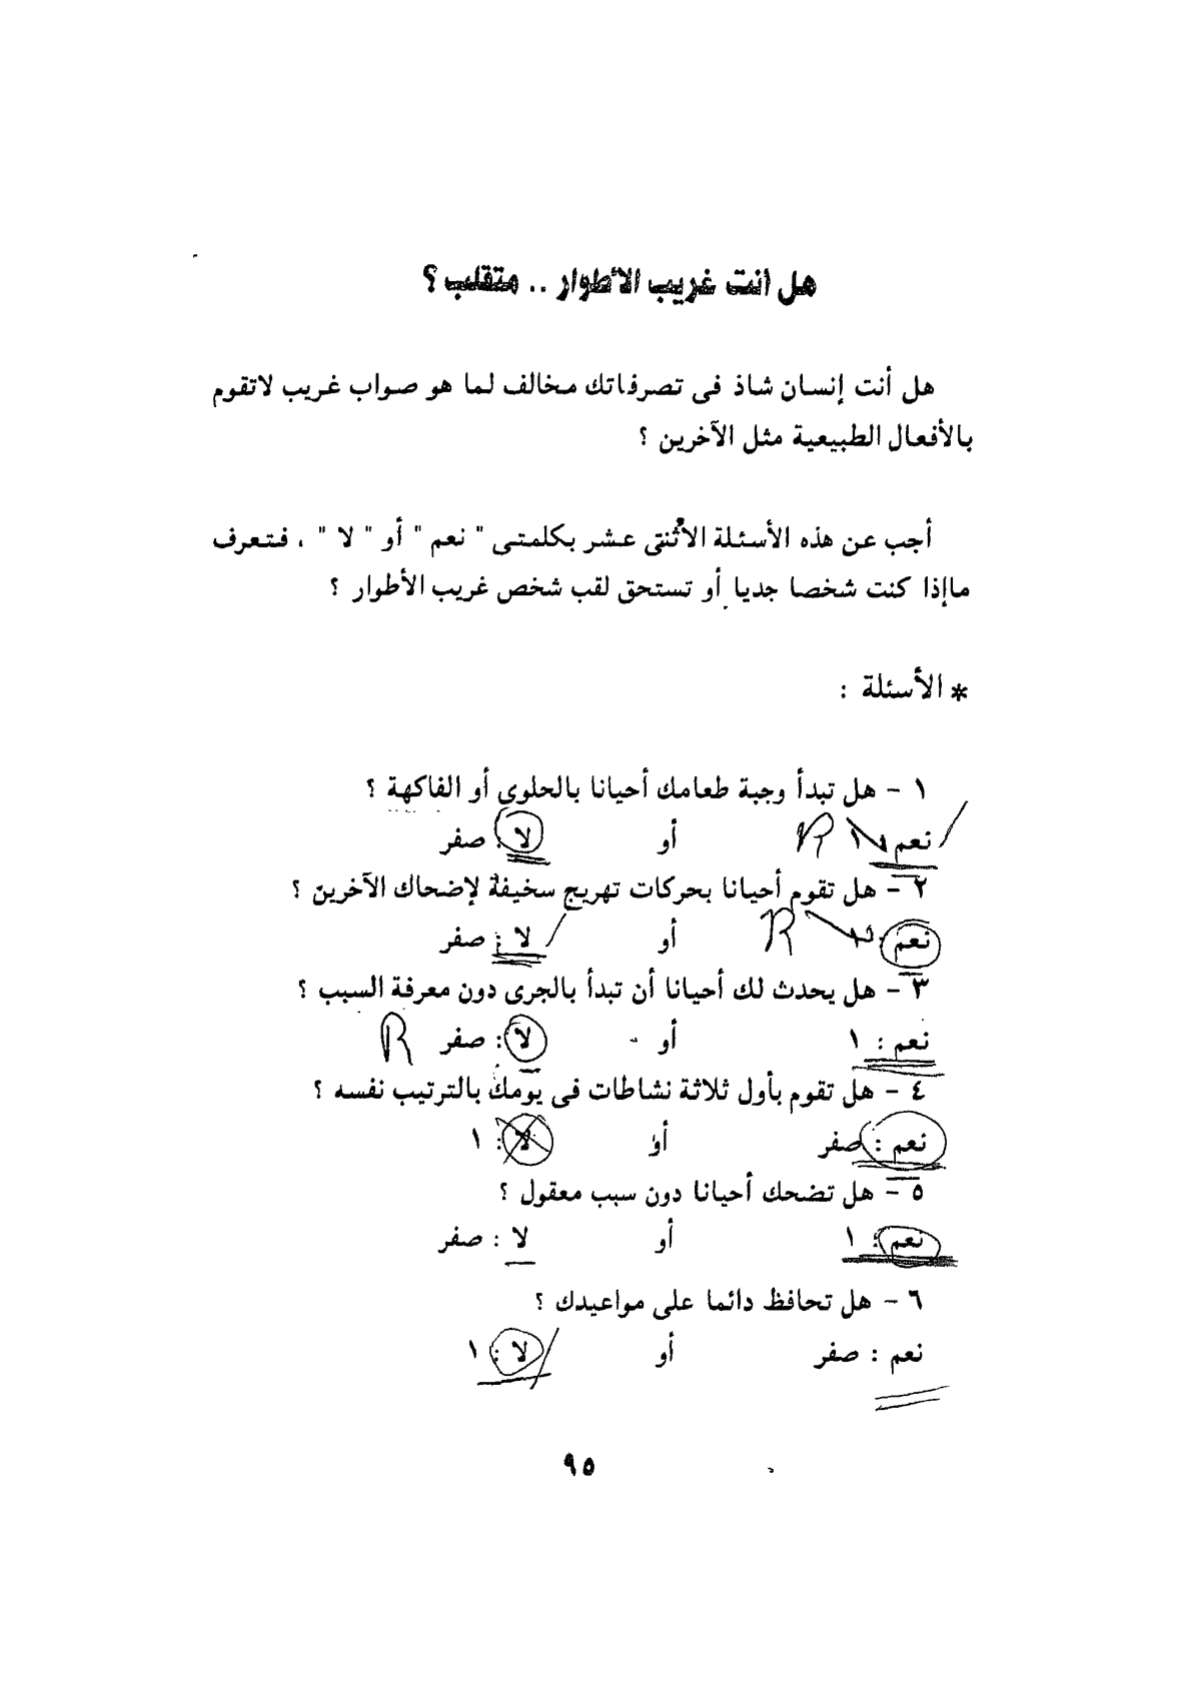 هل أنت غريب الأطوار .. متقلب ؟
هل أنت إنسان شاذ فى تصرفاتك مخالف لما هو صواب غريب لاتقوم
بالأفعال الطبيعية مثل الآخرين ؟
أجب عن هذه الأسئلة الأثنتى عشر بكلمتى " نعم " أو " لا " ، فتعرف
ماإذا كنت شخصا جديا أو تستحق لقب شخص غريب الأطوار ؟
* الأسئلة :
١ - هل تبدأ وجبة طعامك أحيانا بالحلوى أو الفاكهة ؟
نعم : ١ R أو لا : صفر
٢ - هل تقوم أحيانا بحركات تهريج سخيفة لإضحاك الآخرين ؟
نعم : ١ R أو لا : صفر
٣ - هل يحدث لك أحيانا أن تبدأ بالجرى دون معرفة السبب ؟
نعم : ١ أو لا : صفر R
٤ - هل تقوم بأول ثلاثة نشاطات فى يومك بالترتيب نفسه ؟
نعم : صفر أو لا : ١
٥ - هل تضحك أحيانا دون سبب معقول ؟
نعم : ١ أو لا : صفر
٦ - هل تحافظ دائما على مواعيدك ؟
نعم : صفر أو لا : ١
٩٥